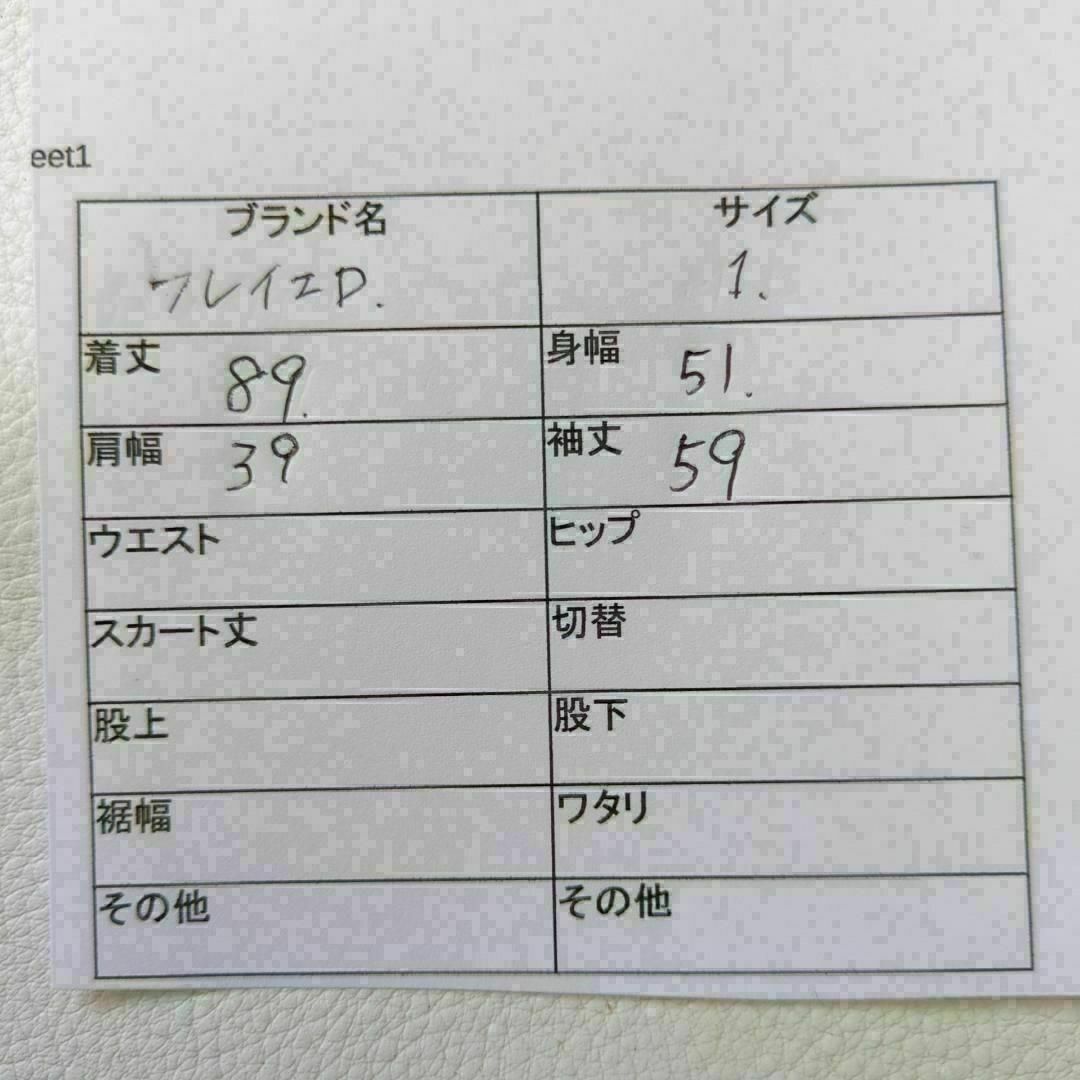 eet1
ブランド名 サイズ
フレイエD. 1.
着丈 89. 身幅 51.
肩幅 39 袖丈 59
ウエスト ヒップ
スカート丈 切替
股上 股下
裾幅 ワタリ
その他 その他